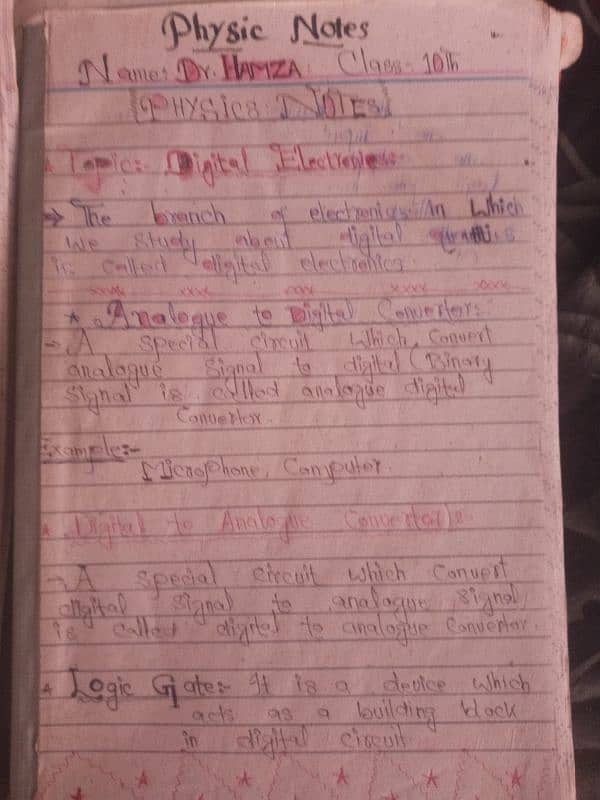 Physic Notes
Name: Dr. HAMZA Class- 10th
PHYSICS NOTES
Topic:- Digital Electronics:
→ The branch of electronics in Which
we study about digital
is called digital electronics.
* Analogue to Digital Convertor:
→ A special circuit which Convert
analogue signal to digital (Binary
Signal is called analogue digital
Convertor.
Example:-
Microphone, Computer.
* Digital to Analogue Convertor:
→ A special circuit which Convert
digital signal to analogue signal
is called digital to analogue Convertor.
* Logic Gate:- It is a device which
acts as a building block
in digital circuit